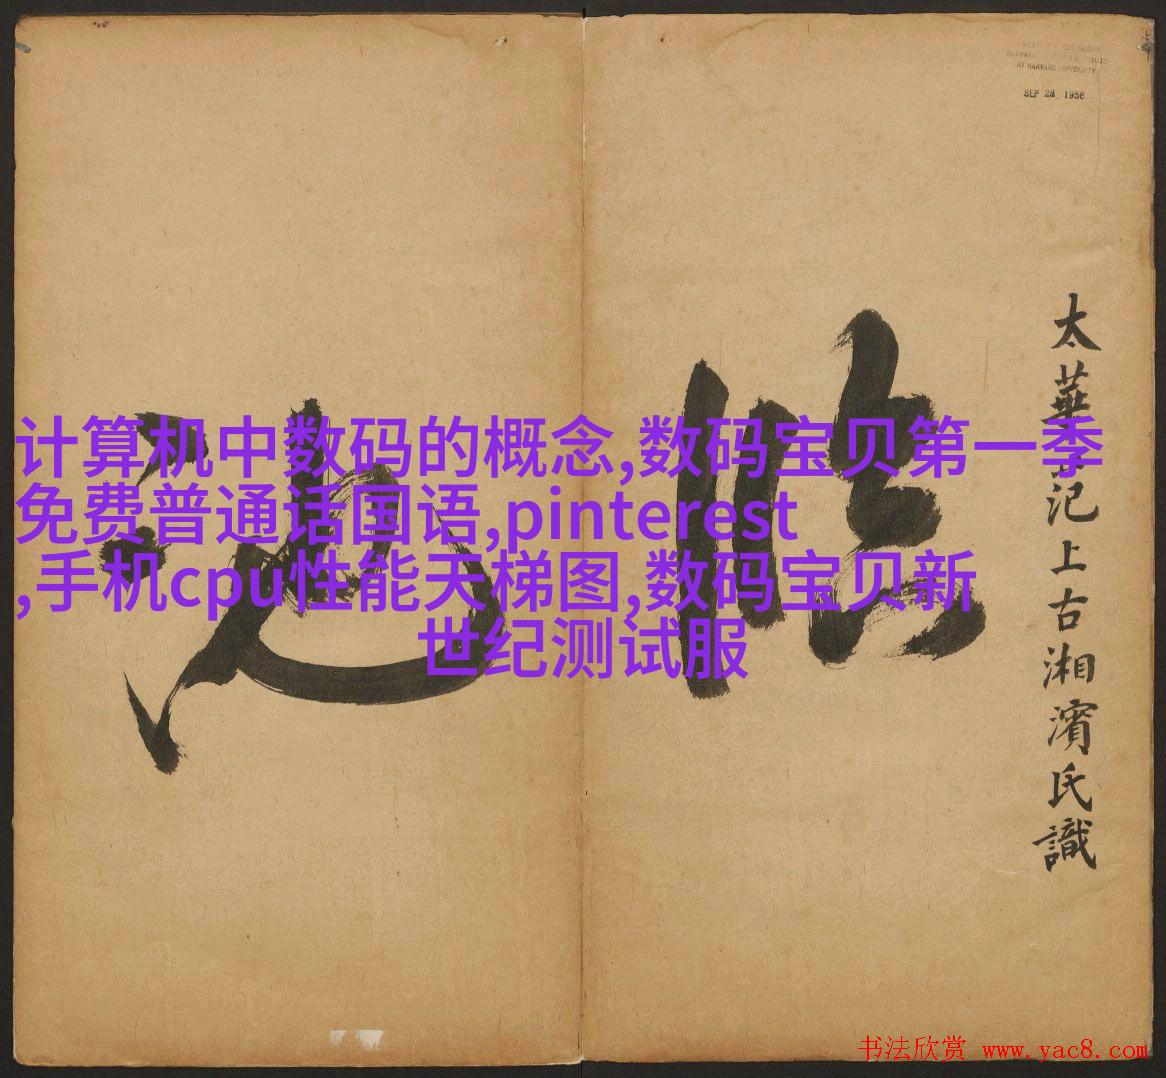 AT HARVARD UNIVERSITY
SEP 28 1956
臨池
太華
上古湘濱氏識
计算机中数码的概念,数码宝贝第一季
免费普通话国语,pinterest
,手机cpu性能天梯图,数码宝贝新
世纪测试服
书法欣赏 www.yac8.com